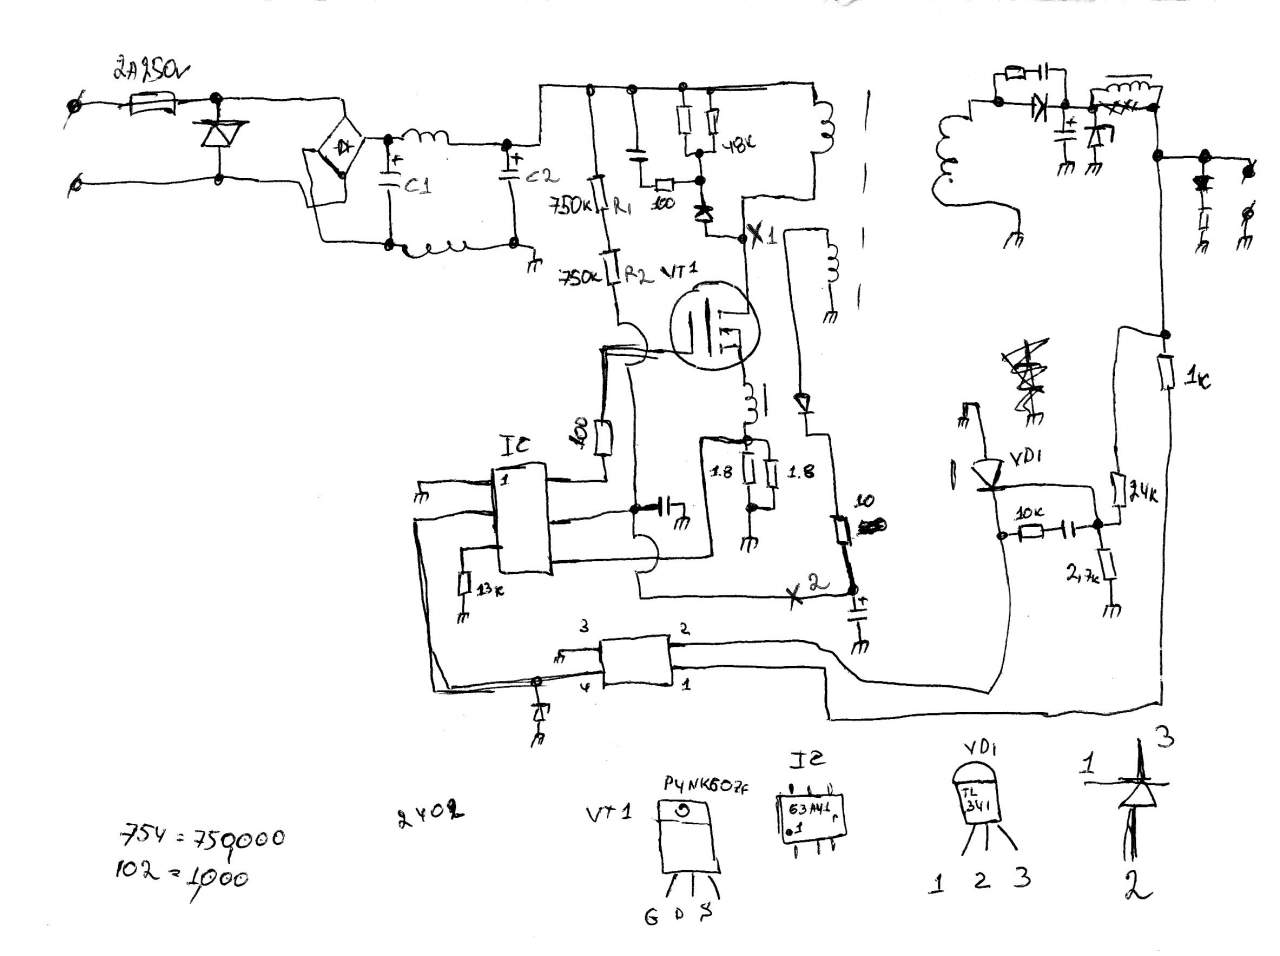 2A250V
C1
C2
48K
100
750K R1
750K R2
VT1
X1
1K
100
IC
1
1.8
1.8
10
VD1
24K
10K
2,7K
13K
X 2
3
2
4
1
754 = 750,000
102 = 1,000
2402
VT1
P4NK607F
G D S
IC
63A41
1
VD1
TL
341
1 2 3
1
3
2